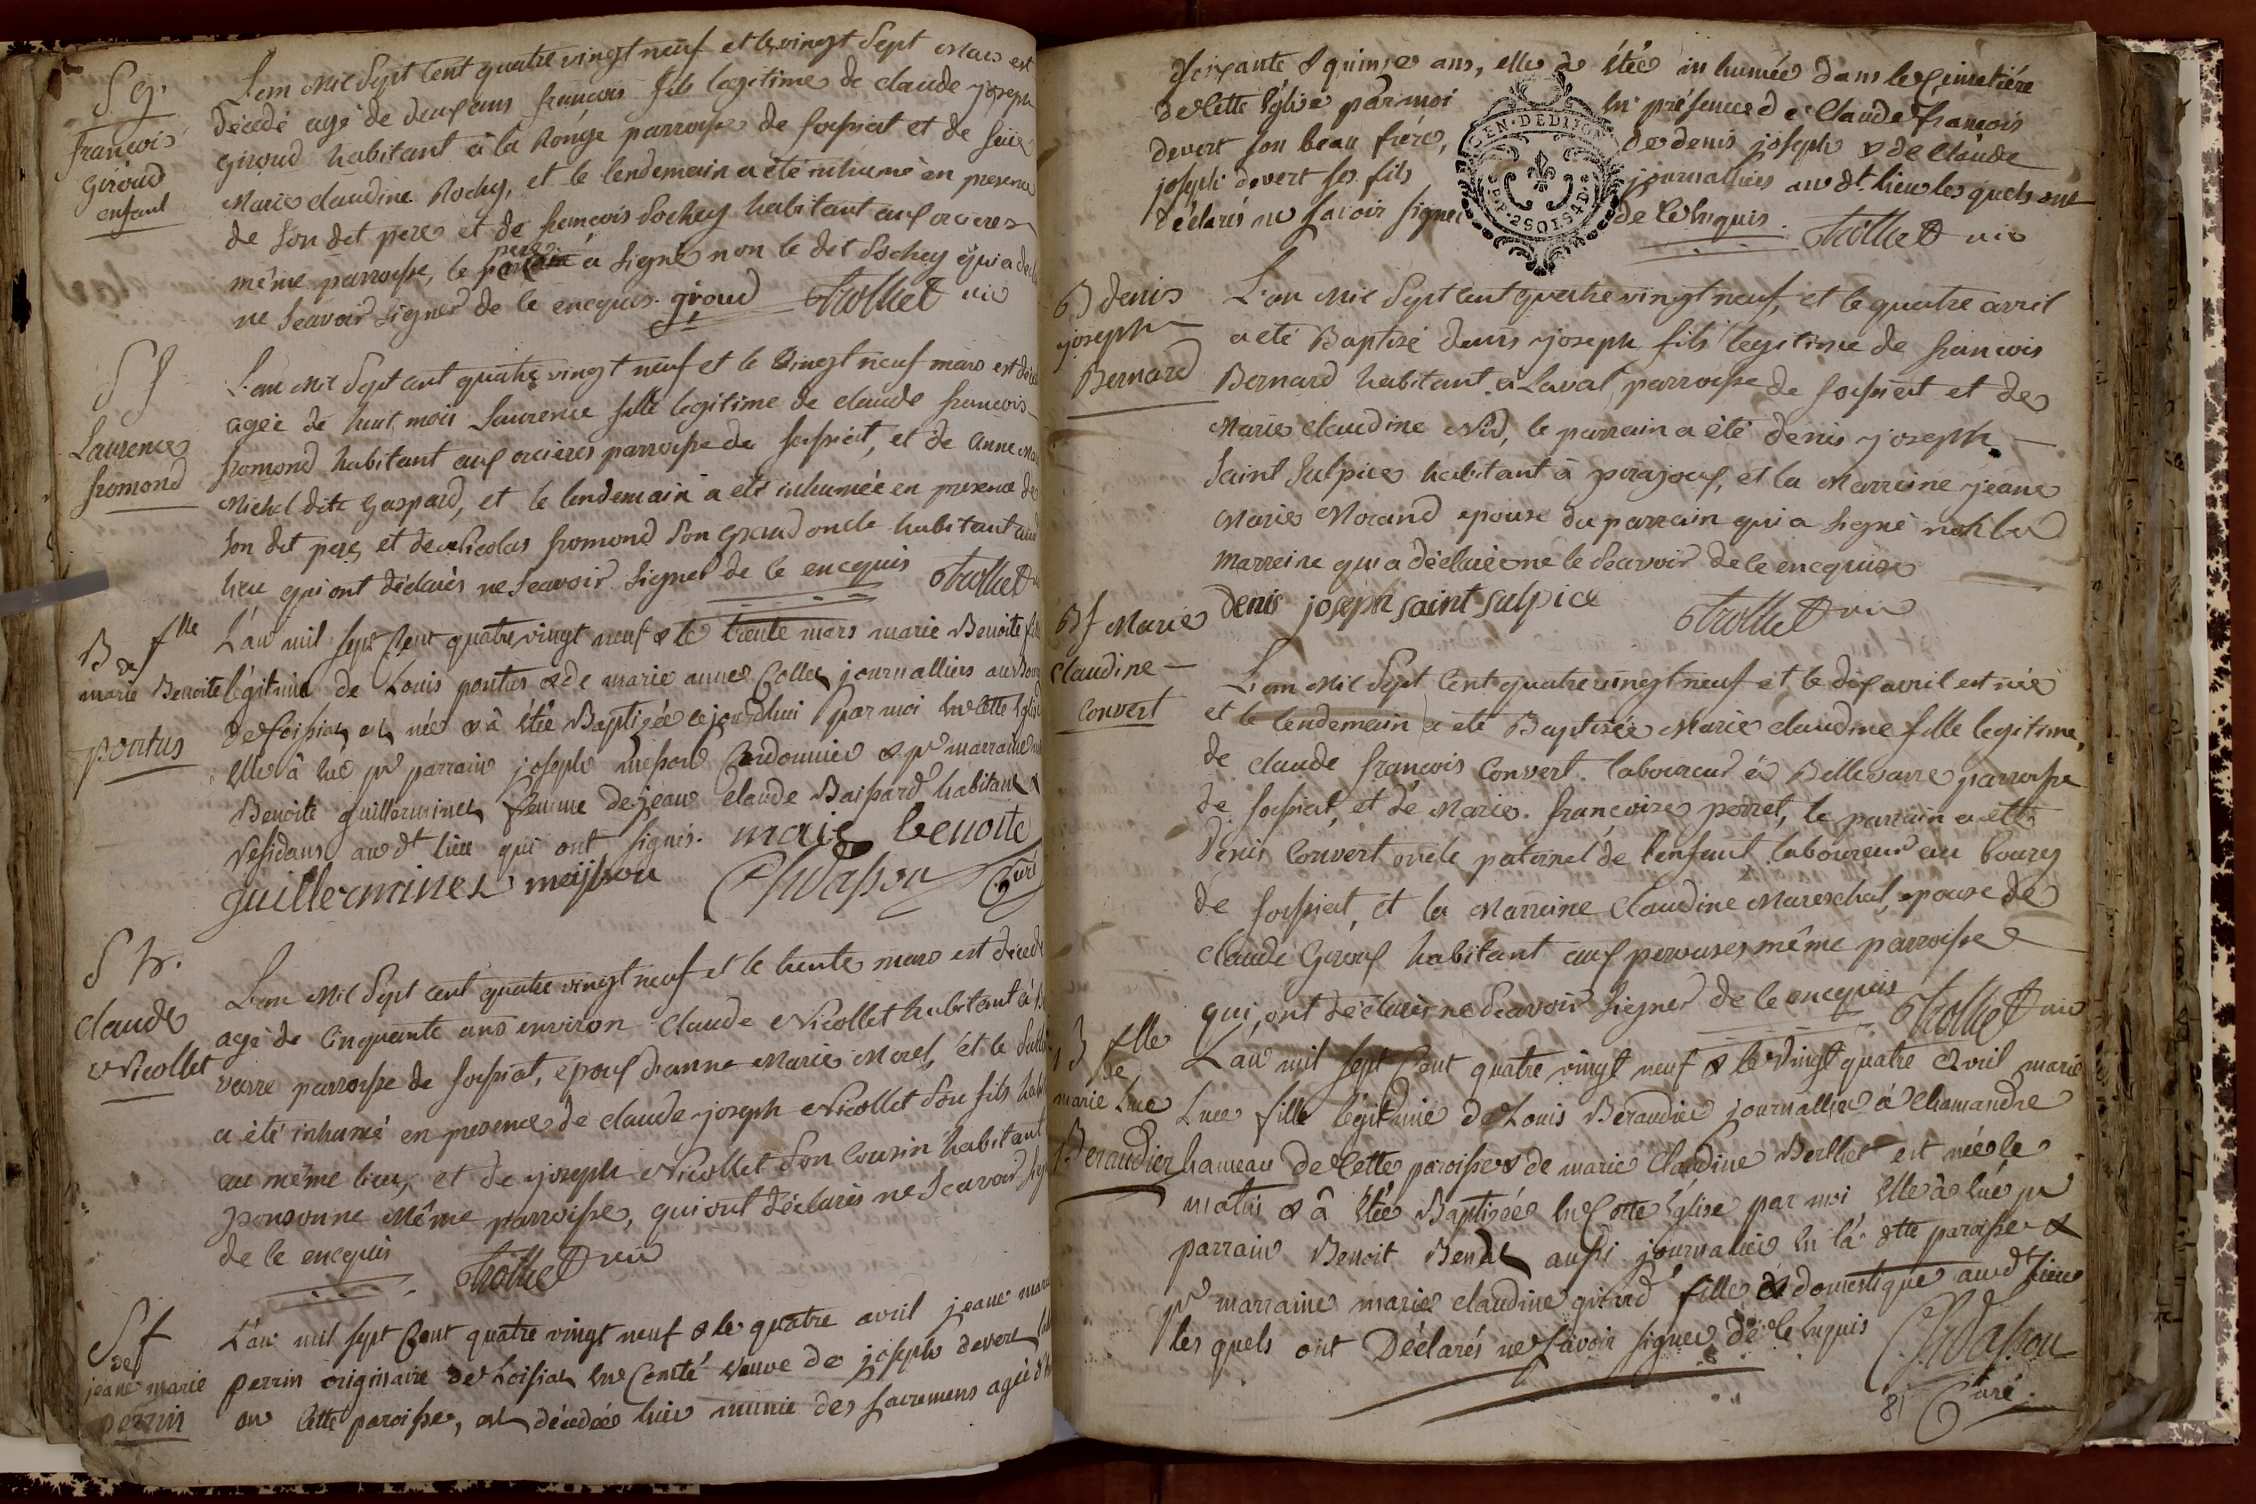 S g.
françois
giroud
enfant
L'an mil sept cent quatre vingt neuf et le vingt sept mars est
décédé agé de deux ans françois fils legitime de claude joseph
giroud habitant à la Ronge parroisse de foissiat et de feüe
Marie claudine Rochy, et le lendemain a été inhumé en presence
de son dit pere et de françois Sochey habitant aux orcieres
même parroisse, le pere a signé non le dit Sochey qui a declaré
ne sçavoir signer de ce encquis. giroud Trolliet vic
S f
Laurence
fromond
L'an mil sept cent quatre vingt neuf et le vingt neuf mars est décédée
agée de huit mois Laurence fille legitime de claude françois
fromond habitant aux orcieres parroisse de foissiat, et de anne marie
Michel dite Gaspard, et le lendemain a été inhumée en presence de
son dit pere, et de nicolas fromond son grand oncle habitant audit
lieu qui ont déclarés ne sçavoir signer de ce encquis Trolliet
B de flle
marie Benoite
pontus
L'an mil sept Cent quatre vingt neuf & le trente mars marie Benoite fille
légitime de Louis pontus & de marie anne Collet journalliers au Bourg
de foissiat est née & â étée Baptizée cejourdhui par moi en cette Eglise
elle â eue pr parrain joseph meisson Cordonnier & pr marraine
Benoite guillerminet femme de jean Claude Baissard habitant &
residans au dt lieu qui ont signés. marie benoite
guillerminet meisson Chvdasson Curé
S h.
claude
Nicollet
L'an mil sept cent quatre vingt neuf et le trente mars est décedé
agé de cinquante ans environ claude Nicollet habitant à Belle
varre parroisse de foissiat, epoux d'anne Marie Morel, et le
a été inhumé en presence de claude joseph Nicollet son fils
au même lieu, et de joseph Nicollet son cousin habitant
ponsonne même parroisse, qui ont déclarés ne sçavoir
de ce encquis Trolliet vic
S de f
jeane marie
perrin
L'an mil sept Cent quatre vingt neuf & le quatre avril jeane marie
perrin originaire de Loisiat en Comté veuve de joseph devert
en cette paroisse, est décédée hier munie des sacremens agée d'en
soixante & quinze ans, elle â étée inhumée dans le Cimetiére
de Cette Eglise par moi en présence de Claude françois
devert son beau frére, de denis joseph & de Claude
joseph devert ses fils journalliers au dt lieu les quels ont
déclarés ne savoir signer de Ce Enquis. Trolliet vic
GEN. DE DIJON
B denis
joseph
Bernard
L'an mil sept cent quatre vingt neuf, et le quatre avril
a été Baptisé denis joseph fils legitime de françois
Bernard habitant à Laval parroisse de foissiat et de
Marie claudine Nid, le parrain a été denis joseph
saint sulpice habitant à pirajoux, et la Marreine jeane
Marie Morand epouse du parrain qui a signé non la
marreine qui a déclarée ne le sçavoir de ce encquise
denis joseph saint sulpice Trolliet vic
B f Marie
claudine
Convert
L'an mil sept cent quatre vingt neuf et le dix avril est née
et le lendemain a été Baptisée Marie claudine fille legitime
de claude françois Convert laboureur à Bellevarre parroisse
de foissiat, et de Marie françoise perret, le parrain a été
Denis Convert oncle paternel de l'enfant laboureur au bourg
de foissiat, et la Marreine Claudine Mareschal, epouse de
claude Giroux habitant aux perouses même parroisse
qui ont déclarés ne sçavoir signer de ce encquis Trolliet vic
B de flle
marie Luce
Beraudier
L'an mil sept Cent quatre vingt neuf & le vingt quatre avril marie
Luce fille légitime de Louis Beraudier journallier à Chamandre
hameau de Cette paroisse & de marie Claudine Berthet est née le
matin & â étée Baptizée en Cette Eglise par moi elle â eue pr
parrain Benoit Bendet aussi journalier en la dtte paroisse &
pr marraine marie claudine girard fille & domestique audt lieu
les quels ont Déclarés ne savoir signer de Ce Enquis Chvdasson
81 Curé.